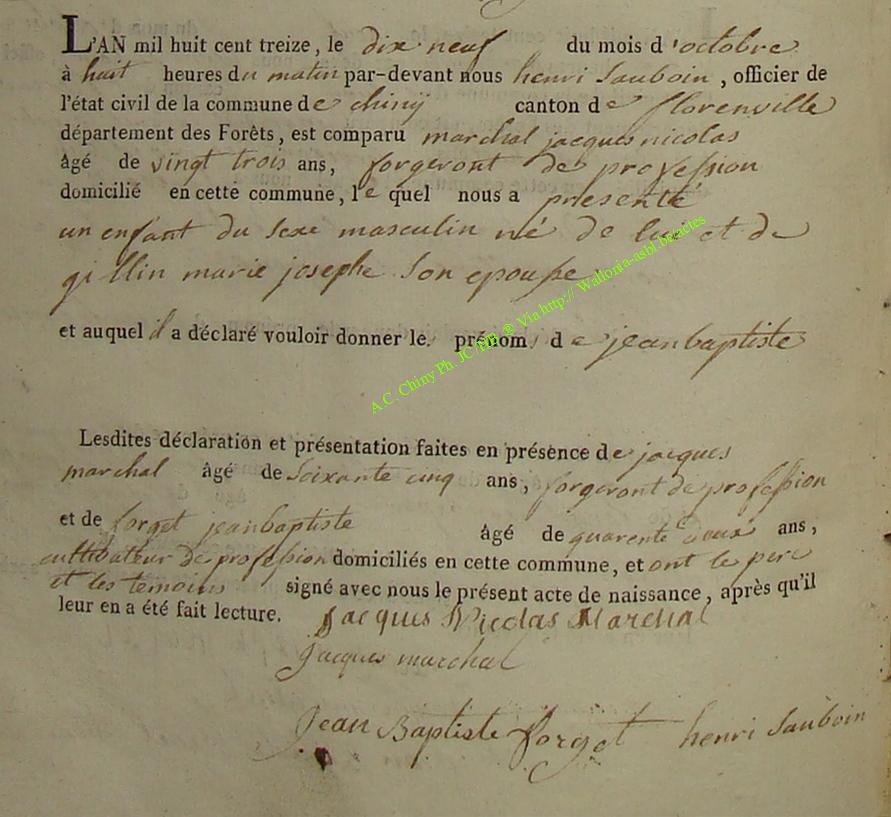 L'AN mil huit cent treize, le dix neuf du mois d'octobre
à huit heures du matin par-devant nous henri Sauboin, officier de
l'état civil de la commune de chiny canton de florenville
département des Forêts, est comparu marchal jacques nicolas
âgé de vingt trois ans, forgeront de profession
domicilié en cette commune, le quel nous a presenté
un enfant du sexe masculin né de lui et de
gillin marie josephe son epouse.
et auquel il a déclaré vouloir donner les prénoms de jean baptiste
A.C. Chiny Ph. JC Via http:// Wallonia-asbl.be/actes
Lesdites déclaration et présentation faites en présence de jacques
marchal âgé de soixante cinq ans, forgeront de profession
et de forget jean baptiste âgé de quarente deux ans,
cultibateur de profession domiciliés en cette commune, et ont le pere
et les temoins signé avec nous le présent acte de naissance, après qu'il
leur en a été fait lecture. Jacques Nicolas Marchal
jacques marchal
Jean Baptiste forget henri Sauboin